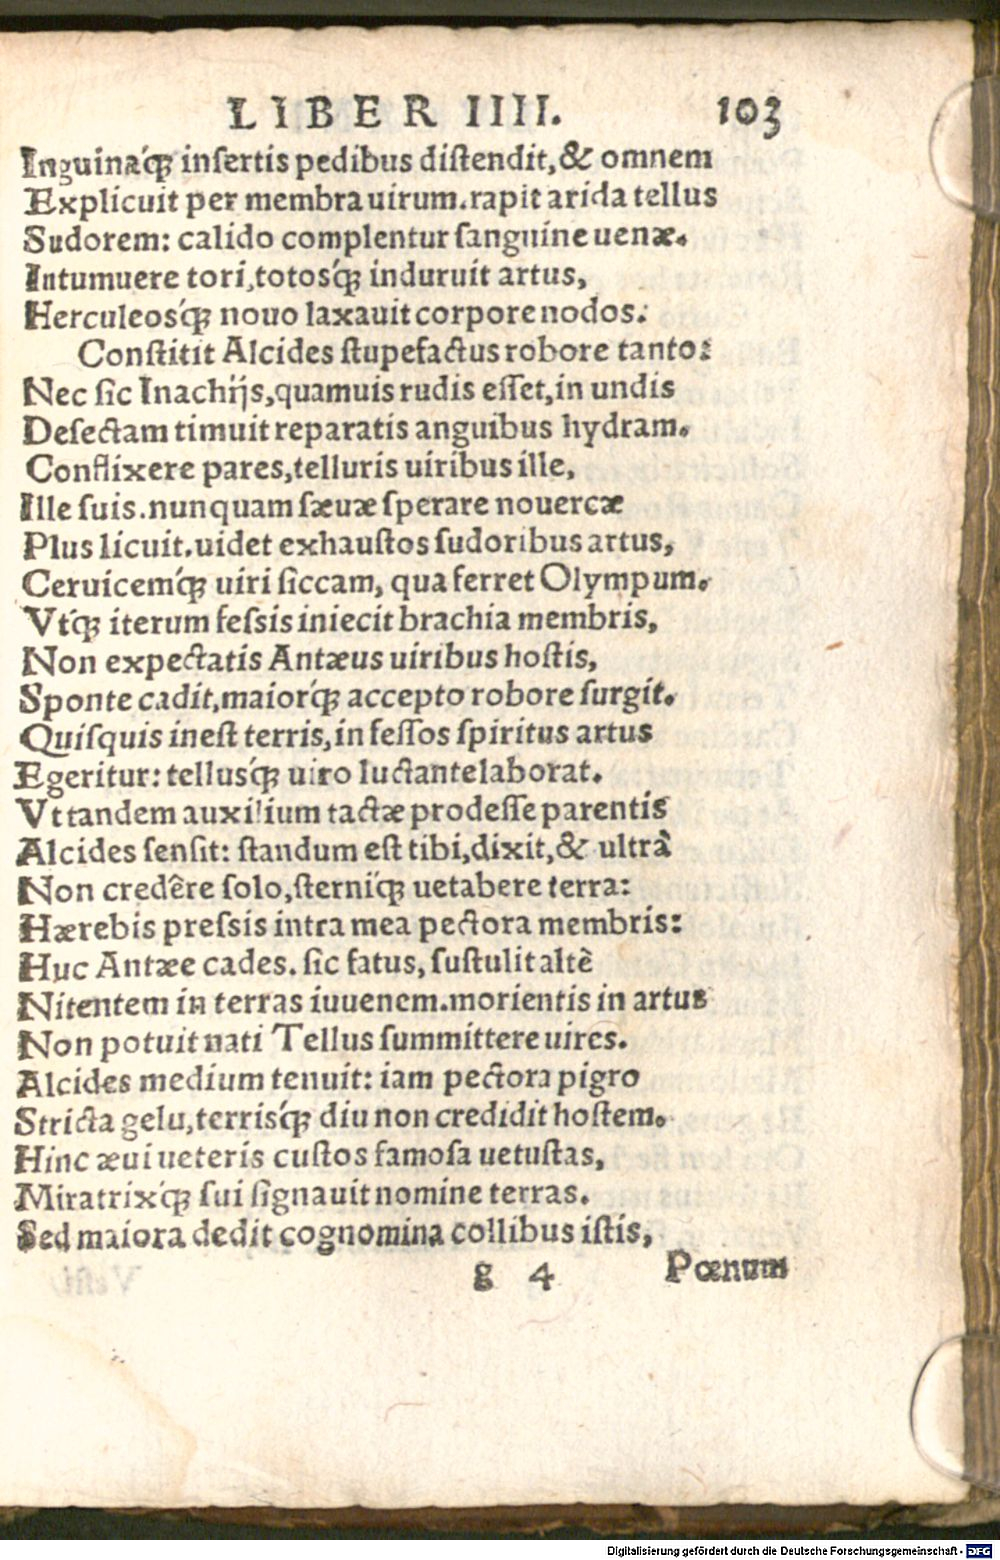 LIBER IIII. 103
Inguinaq́ꝫ insertis pedibus distendit, & omnem
Explicuit per membra uirum. rapit arida tellus
Sudorem: calido complentur sanguine uenæ.
Intumuere tori, totosq́ꝫ induruit artus,
Herculeosq́ꝫ nouo laxauit corpore nodos.
Constitit Alcides stupefactus robore tanto:
Nec sic Inachijs, quamuis rudis esset, in undis
Desectam timuit reparatis anguibus hydram.
Conflixere pares, telluris uiribus ille,
Ille suis. nunquam sæuæ sperare nouercæ
Plus licuit. uidet exhaustos sudoribus artus,
Ceruicemq́ꝫ uiri siccam, qua ferret Olympum.
Vtq́ꝫ iterum fessis iniecit brachia membris,
Non expectatis Antæus uiribus hostis,
Sponte cadit, maiorq́ꝫ accepto robore surgit.
Quisquis inest terris, in fessos spiritus artus
Egeritur: tellusq́ꝫ uiro luctante laborat.
Vt tandem auxilium tactæ prodesse parentis
Alcides sensit: standum est tibi, dixit, & ultrà
Non credêre solo, sterniq́ꝫ uetabere terra:
Hærebis pressis intra mea pectora membris:
Huc Antæe cades. sic fatus, sustulit altè
Nitentem in terras iuuenem. morientis in artus
Non potuit nati Tellus summittere uires.
Alcides medium tenuit: iam pectora pigro
Stricta gelu, terrisq́ꝫ diu non credidit hostem.
Hinc æui ueteris custos famosa uetustas,
Miratrixq́ꝫ sui signauit nomine terras.
Sed maiora dedit cognomina collibus istis,
g 4 Pœnum
Digitalisierung gefördert durch die Deutsche Forschungsgemeinschaft - DFG